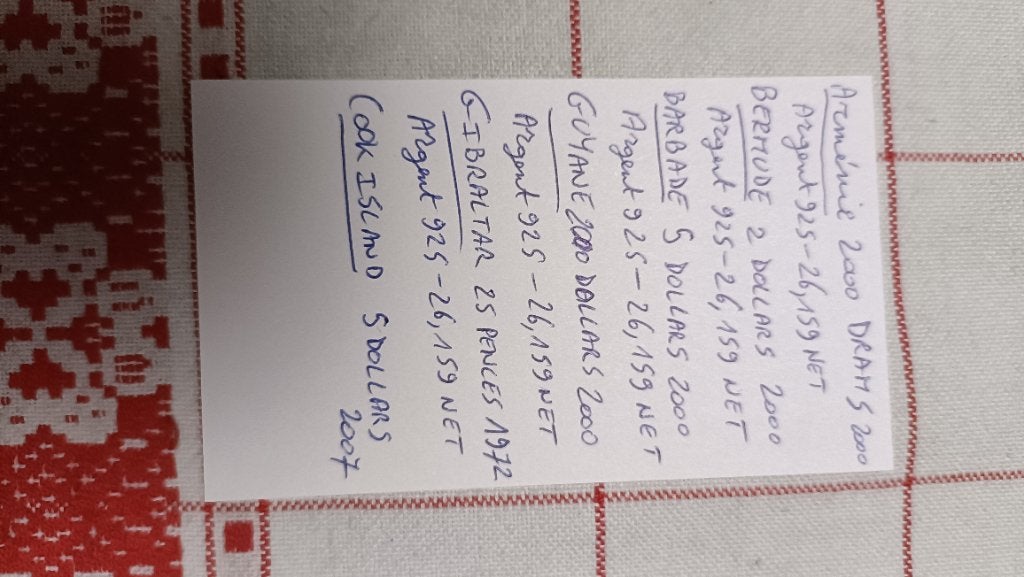 Arménie 2000 DRAMS 2000
Argent 925-26,159 NET
BERMUDE 2 DOLLARS 2000
Argent 925-26,159 NET
BARBADE 5 DOLLARS 2000
Argent 925-26,159 NET
GUYANE 2000 DOLLARS 2000
Argent 925-26,159 NET
GIBRALTAR 25 PENCES 1972
Argent 925-26,159 NET
COOK ISLAND 5 DOLLARS
2007